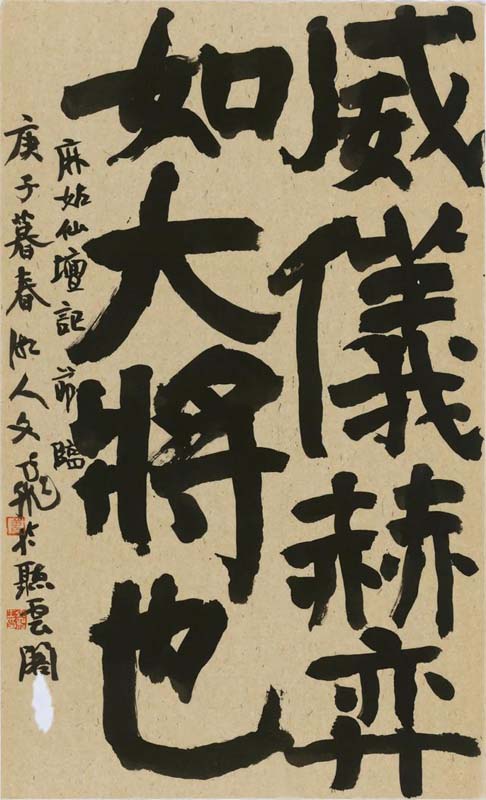 威儀赫弈
如大將也
麻姑仙壇記 節臨
庚子暮春 人文飛於聽雲閣